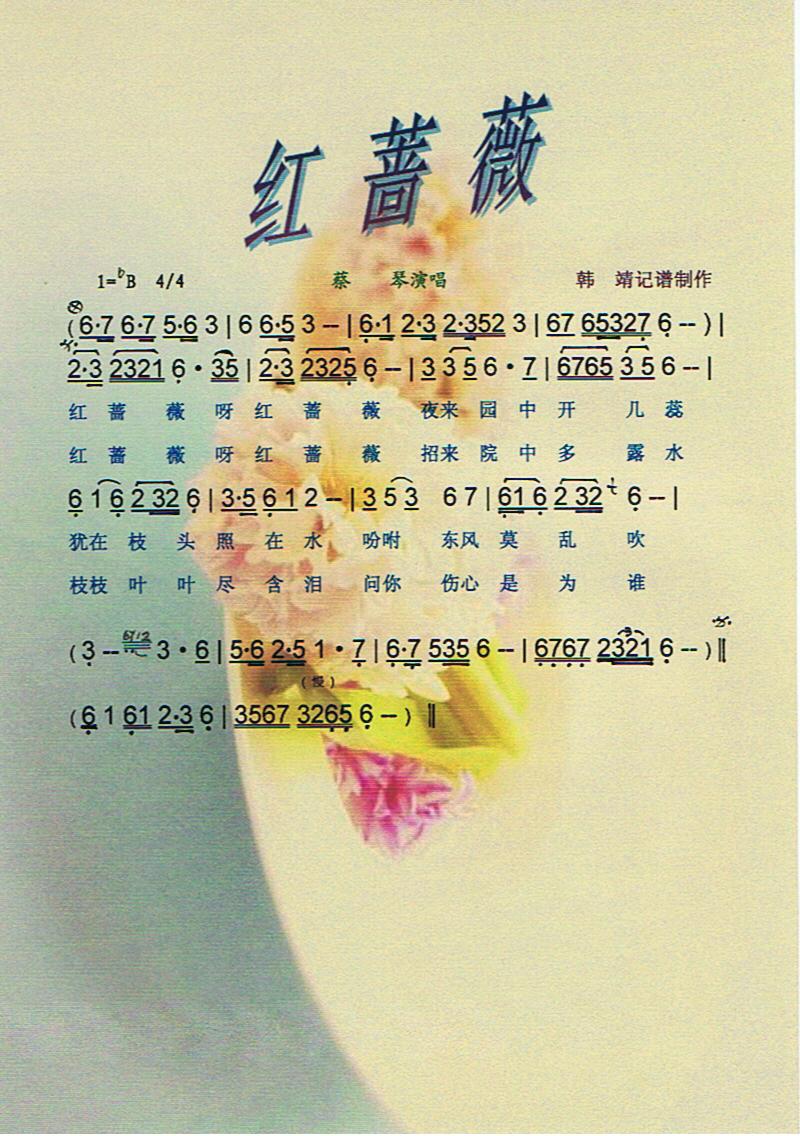 红蔷薇
1=ᵇB 4/4 蔡 琴演唱 韩 靖记谱制作
(6·7 6·7 5·6 3 | 6 6·5 3 -- | 6·1 2·3 2·352 3 | 67 65327 6 -- ) |
2·3 2321 6 · 35 | 2·3 2325 6 -- | 3 3 5 6 · 7 | 6765 3 5 6 -- |
红 蔷 薇 呀 红 蔷 薇 夜来 园 中 开 几 蕊
红 蔷 薇 呀 红 蔷 薇 招来 院 中 多 露 水
6 1 6 2 32 6 | 3·5 6 1 2 -- | 3 5 3 6 7 | 61 6 2 32 6 -- |
犹在 枝 头 照 在 水 吩咐 东风 莫 乱 吹
枝枝 叶 叶 尽 含 泪 问你 伤心 是 为 谁
(3 -- 6712 3 · 6 | 5·6 2·5 1 · 7 | 6·7 535 6 -- | 6767 2321 6 -- ) ‖
(慢)
(6 1 61 2·3 6 | 3567 3265 6 -- ) ‖